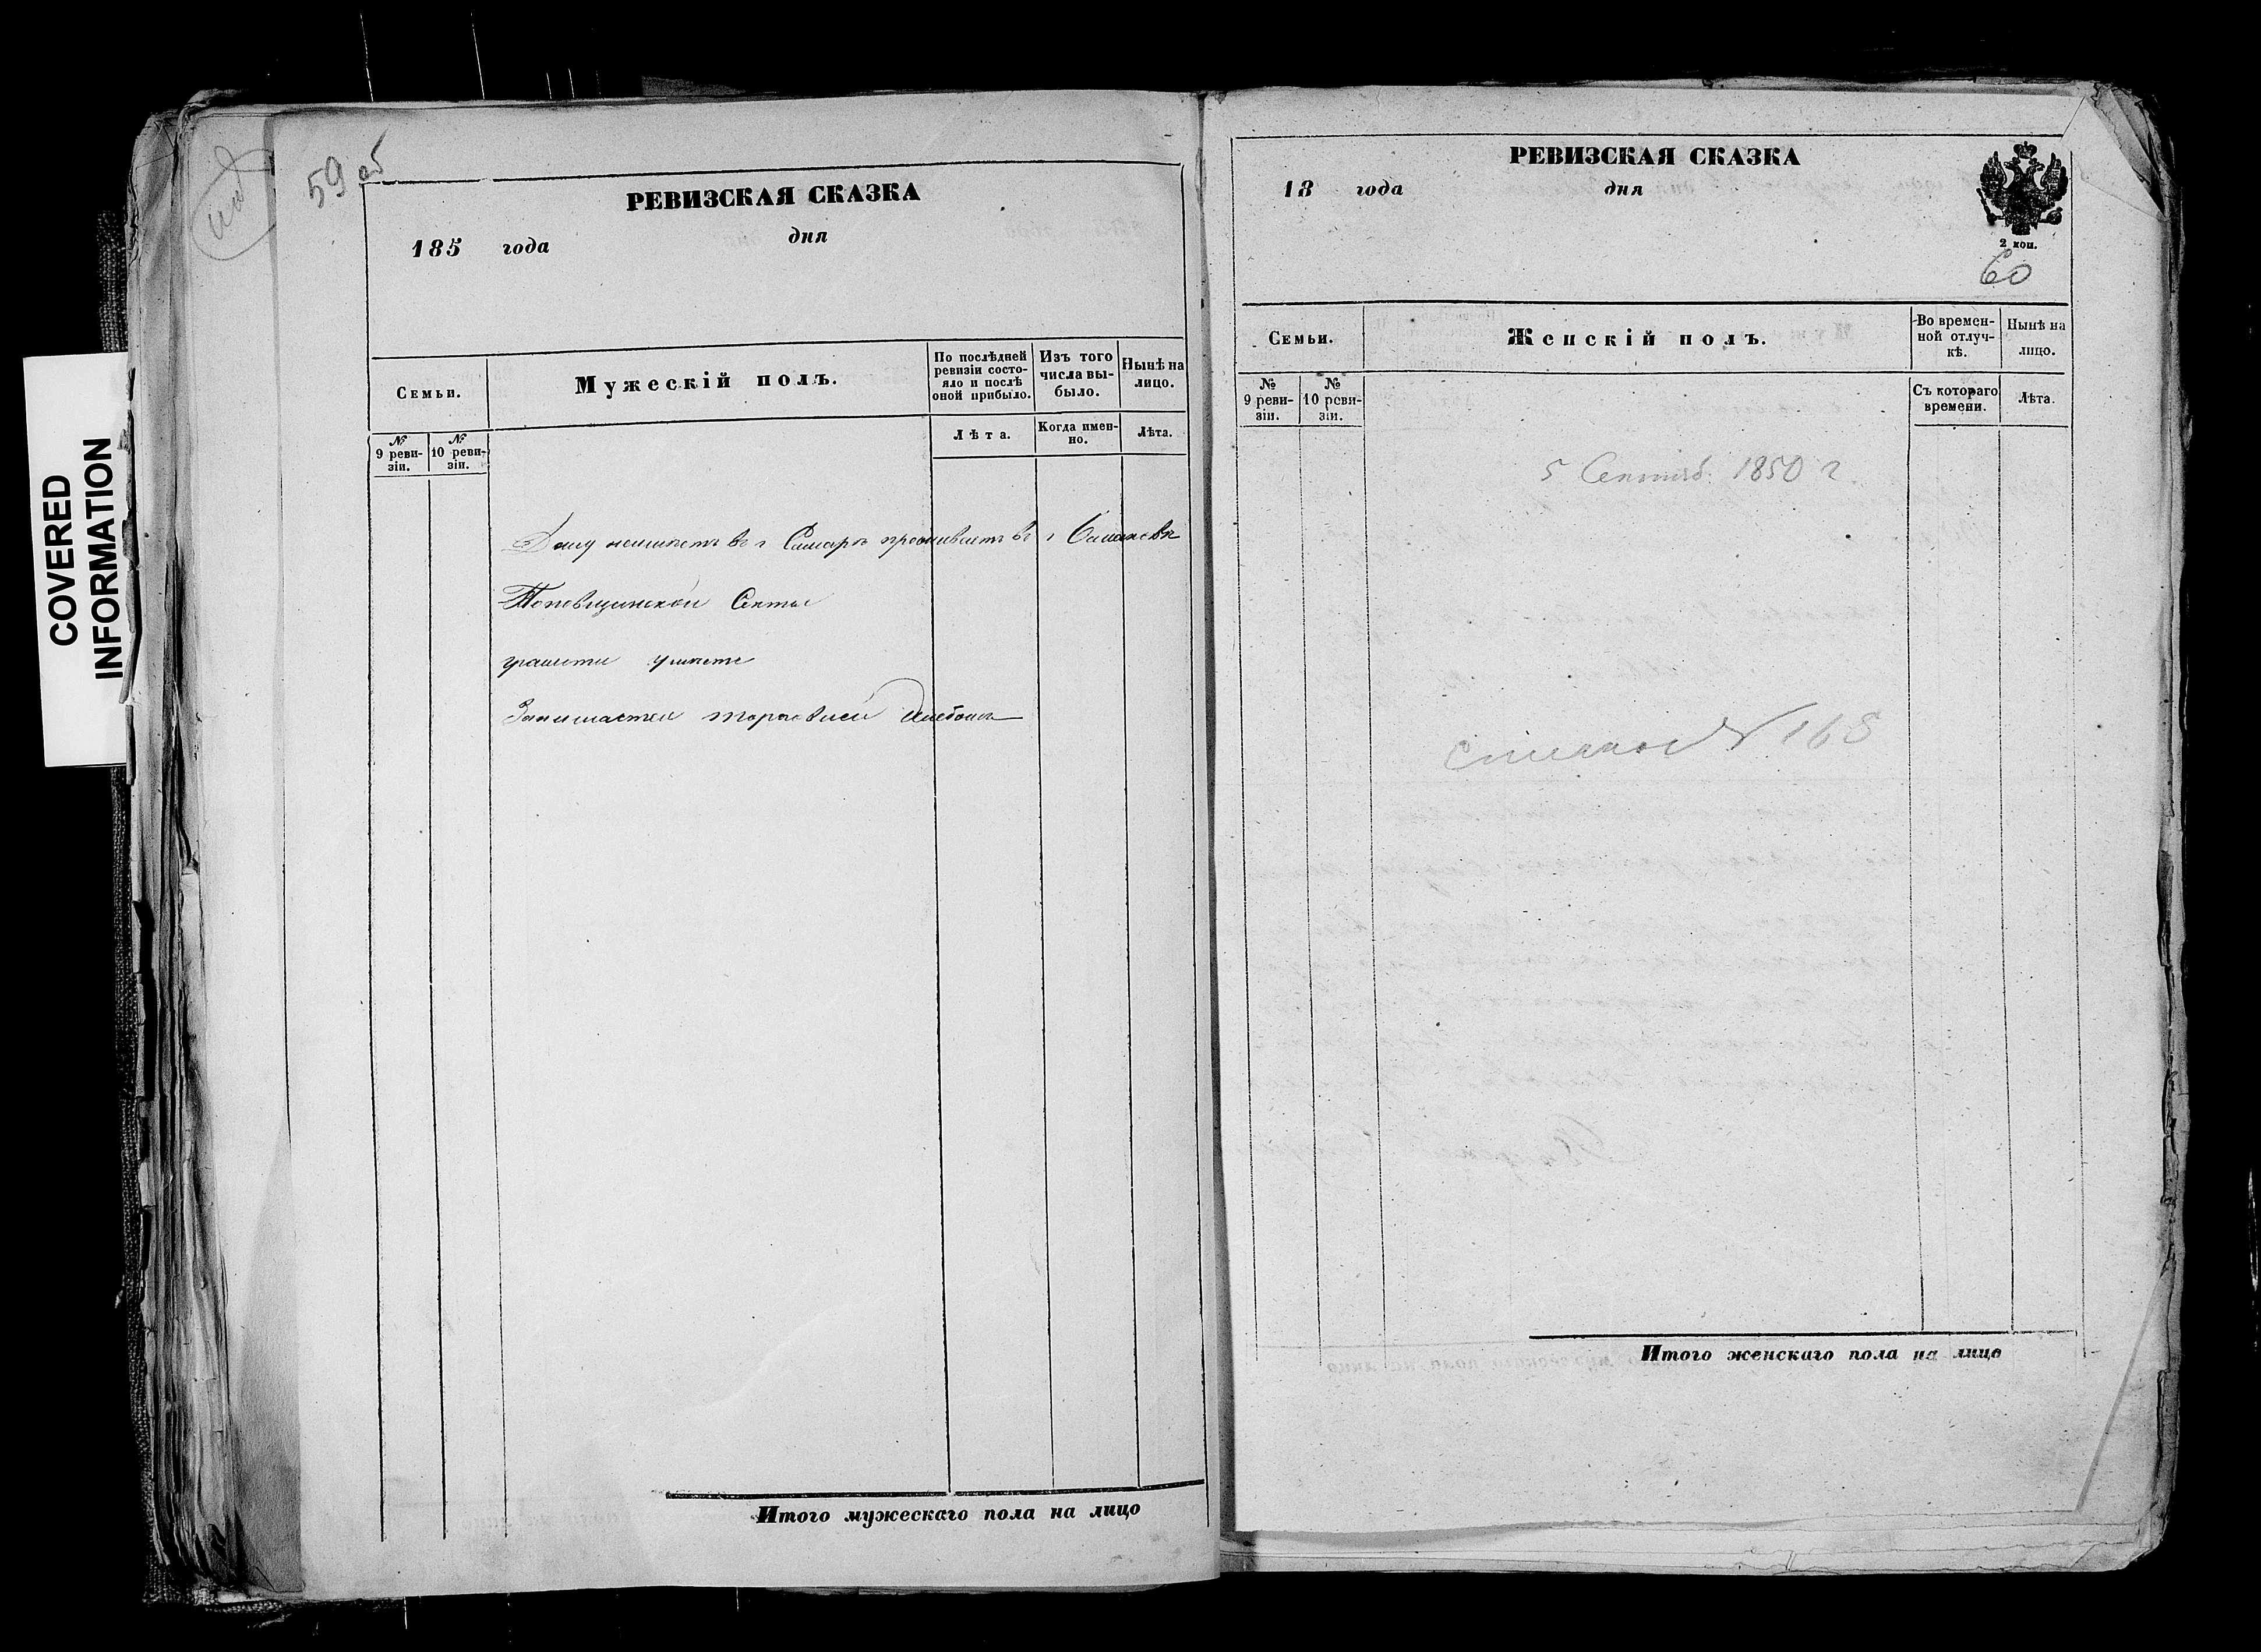 COVERED
INFORMATION
59 об
РЕВИЗСКАЯ СКАЗКА
185 года дня
Семьи.
Мужескій полъ.
По послѣдней ревизіи состояло и послѣ оной прибыло.
Изъ того числа выбыло.
Нынѣ на лицо.
№ 9 ревизіи.
№ 10 ревизіи.
Лѣта.
Когда именно.
Лѣта.
Дому неимѣетъ в г Самарѣ проживаетъ в г
Поповщинской Секты
грамоти умѣетъ
Занимается торговлей хлѣбомъ
Итого мужескаго пола на лицо
РЕВИЗСКАЯ СКАЗКА
18 года дня
2 коп.
60
Семьи.
Женскій полъ.
Во временной отлучкѣ.
Нынѣ на лицо.
№ 9 ревизіи.
№ 10 ревизіи.
Съ котораго времени.
Лѣта.
5 Сентяб. 1850 г.
Итого женскаго пола на лицо